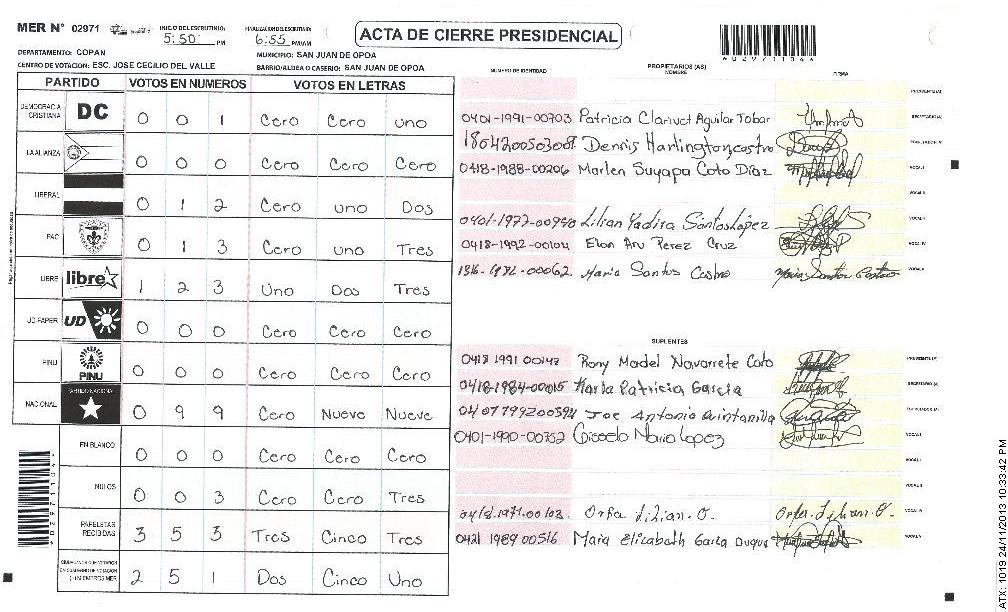 MER N° 02971 INICIO DEL ESCRUTINIO: 5:50 PM FINALIZACION DEL ESCRUTINIO: 6:55 PM/AM ACTA DE CIERRE PRESIDENCIAL
*02971104*
DEPARTAMENTO: COPAN MUNICIPIO: SAN JUAN DE OPOA
CENTRO DE VOTACION: ESC. JOSE CECILIO DEL VALLE BARRIO/ALDEA O CASERIO: SAN JUAN DE OPOA
PARTIDO VOTOS EN NUMEROS VOTOS EN LETRAS
DEMOCRACIA CRISTIANA DC 0 0 1 Cero Cero uno
LA ALIANZA 0 0 0 Cero Cero Cero
LIBERAL 0 1 2 Cero uno Dos
PAC 0 1 3 Cero uno Tres
LIBRE libre 1 2 3 Uno Dos Tres
UD-FAPER UD 0 0 0 Cero Cero Cero
PINU PINU 0 0 0 Cero Cero Cero
NACIONAL PARTIDO NACIONAL 0 9 9 Cero Nueve Nueve
EN BLANCO 0 0 0 Cero Cero Cero
NULOS 0 0 3 Cero Cero Tres
PAPELETAS RECIBIDAS 3 5 3 Tres Cinco Tres
2 5 1 Dos Cinco Uno
*02971104*
NÚMERO DE IDENTIDAD PROPIETARIOS (AS) NOMBRE FIRMA
PRESIDENTE(A)
0401-1991-00703 Patricia Clarivet Aguilar Tobar SECRETARIO(A)
Dennis Harlington castro ESCRUTADOR(A)
0418-1988-00206 Marlen Suyapa Coto Díaz VOCAL I
VOCAL II
0401-1977-00940 Lilian Yadira Santos López VOCAL III
0418-1992-00104 Elan Aru Perez Cruz VOCAL IV
Maria Santos Castro VOCAL V
SUPLENTES
0418 1991 00143 Rony Model Navarrete Coto PRESIDENTE(A)
0418-1984-00015 Karla Patricia Garcia SECRETARIO(A)
Joe Antonio Quintanilla ESCRUTADOR(A)
0401-1990-00752 Lopez VOCAL I
VOCAL II
VOCAL III
Orfa Lilian. O. Orfa. Lilian. O. VOCAL IV
0421 1989 00516 Maria Elizabeth Garza Duque VOCAL V
ATX: 1019 24/11/2013 10:33:42 PM